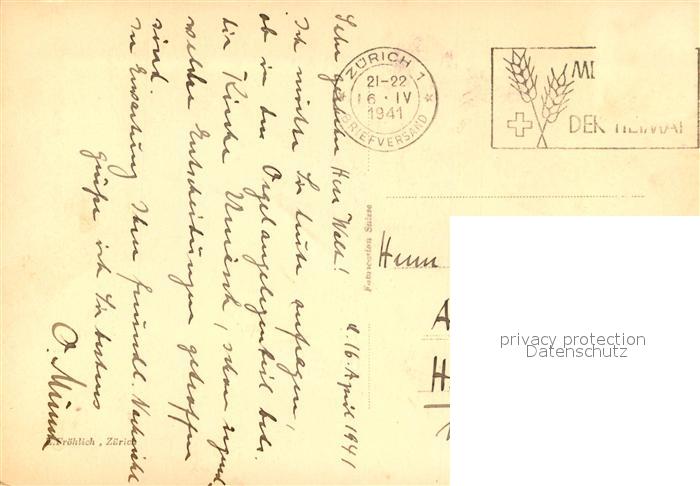 d. 16. April 1941
Sehr geehrter Herr Welti!
Ich möchte Sie heute anfragen,
ob in der Orgelangelegenheit betr.
die Kirche, schon irgend
welche Entscheidungen getroffen
sind.
In Erwartung Ihrer freundl. Nachricht
grüsse ich Sie bestens
O.
Fröhlich, Zürich
Suisse
ZÜRICH 1
21-22
16. IV
1941
BRIEFVERSAND
DER HEIMAT
Herrn
privacy protection
Datenschutz